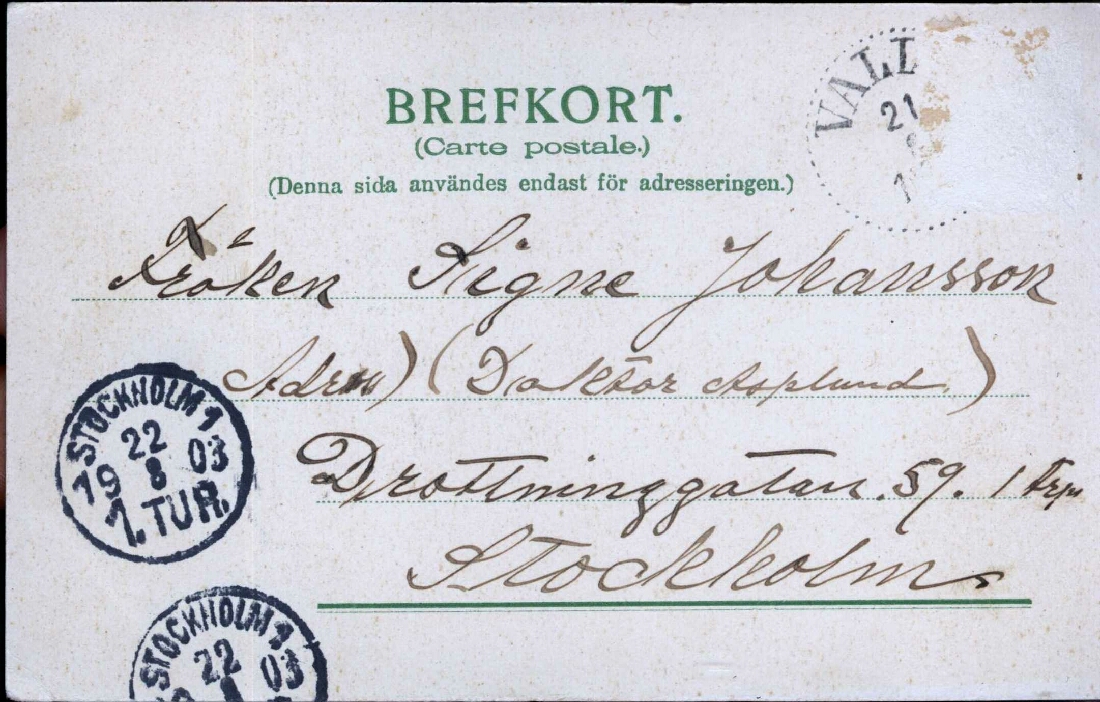 BREFKORT.
(Carte postale.)
(Denna sida användes endast för adresseringen.)
VALL
21
Fröken Signe Johansson
Adress) (Doktor Asplund)
Drottninggatan. 59. 1 Trp
Stockholm
STOCKHOLM 1
22
19 8 03
1. TUR.
STOCKHOLM 1
22
03